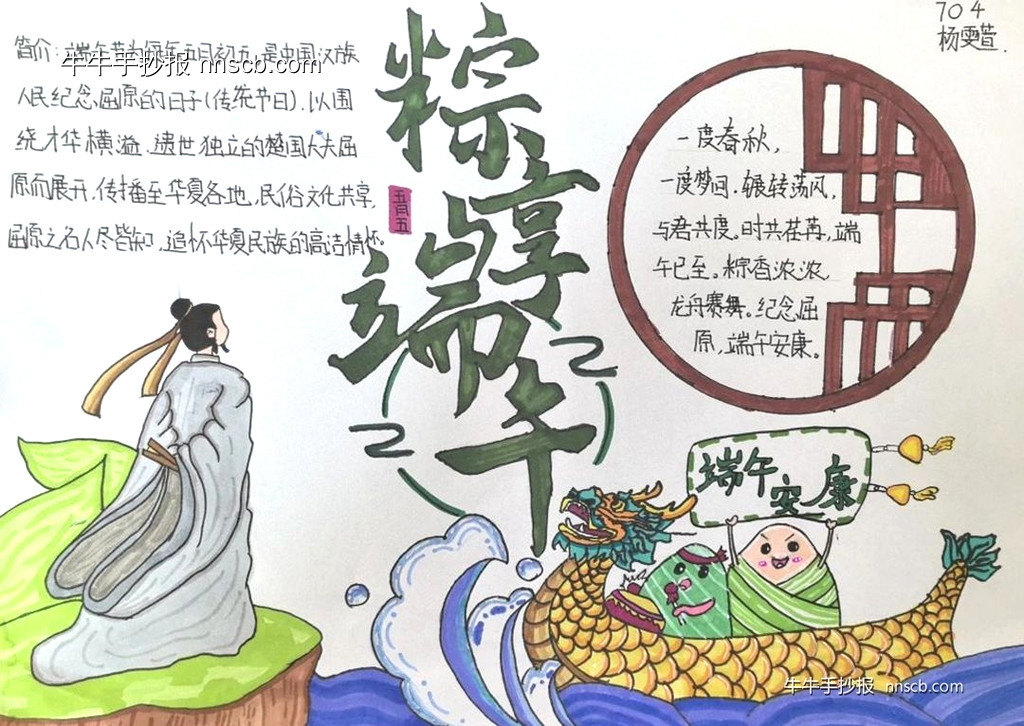 简介:端午节为每年五月初五,是中国汉族
牛牛手抄报 nnscb.com
人民纪念屈原的日子(传统节日).以围
绕才华横溢.遗世独立的楚国大夫屈
原而展开,传播至华夏各地,民俗文化共享,
屈原之名人尽皆知,追怀华夏民族的高洁情怀。
粽享
端午
五月五
704
杨雯萱.
一度春秋,
一度梦间.辗转荡风,
与君共度。时共荏苒,端
午已至。粽香浓浓
龙舟赛舞。纪念屈
原,端午安康。
端午安康
牛牛手抄报 nnscb.com